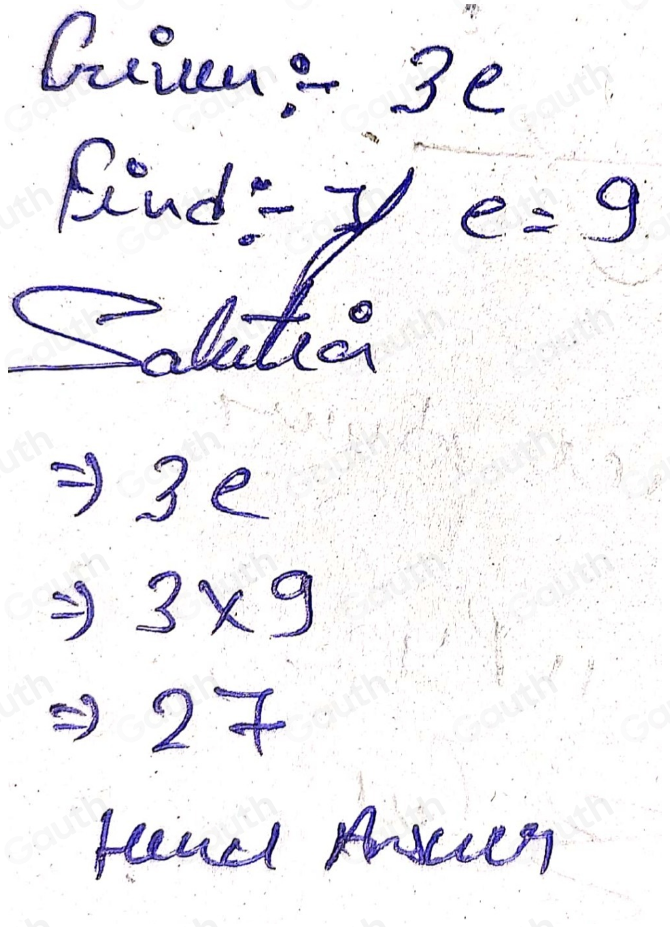 Given :- 3e
Find :- If e = 9
Solution
⇒ 3e
⇒ 3×9
⇒ 27
Hence Answer